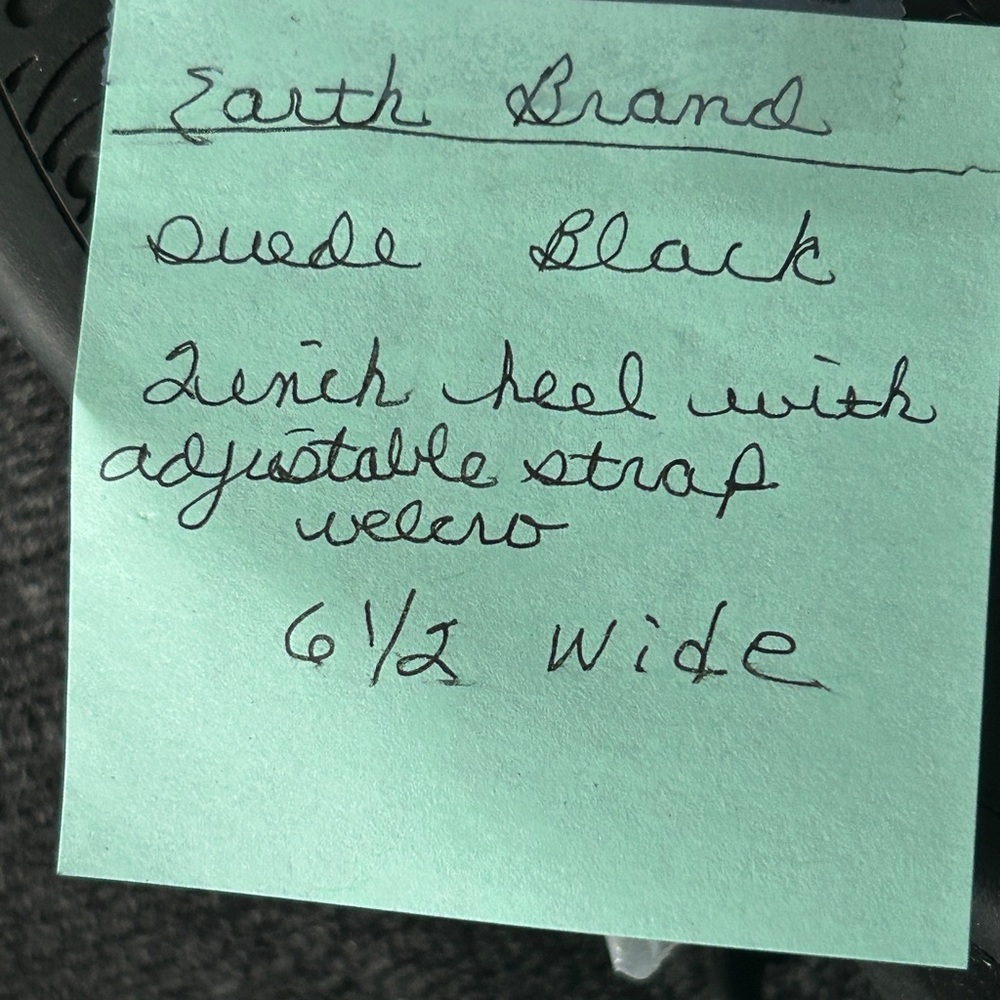 Earth Brand
Suede Black
2 inch heel with
adjustable strap
velcro
6 1/2 Wide